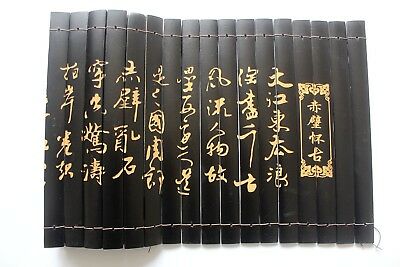 赤壁怀古
大江東去浪
淘盡千古
風流人物故
壘西邊人道
是三國周郎
赤壁乱石
穿空驚濤
拍岸卷起